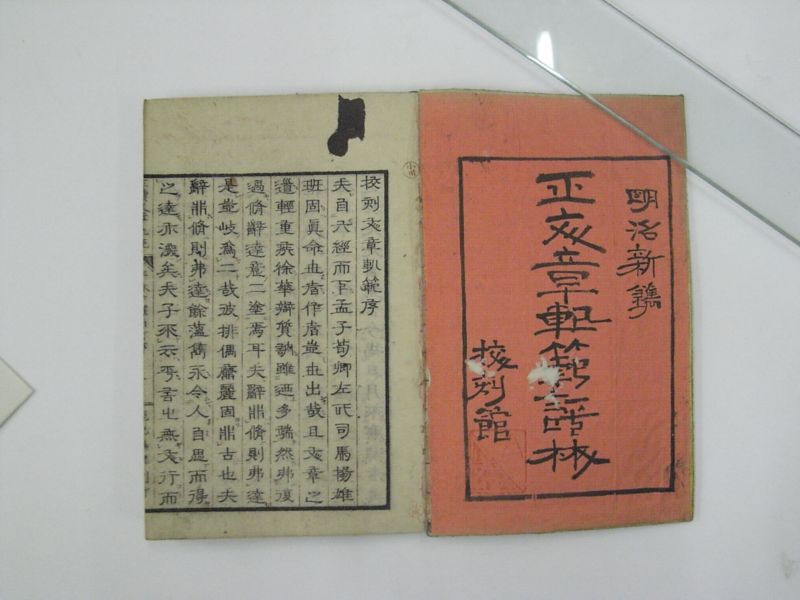 明治新鐫
正文章軌範評林
校刻館
校刻文章軌範序
夫自六經而下孟子荀卿左氏司馬揚雄
班固眞命世作者豈世出哉且文章之
道輕重疾徐華辯質訥雖迺多端然弗復
過脩辭達意二塗焉耳夫辭非脩則弗達
是豈岐爲二哉彼排偶靡麗固非古也夫
辭非脩則弗達餘蘊雋永令人自思而得
之達亦淺矣夫子不云乎言之無文行而